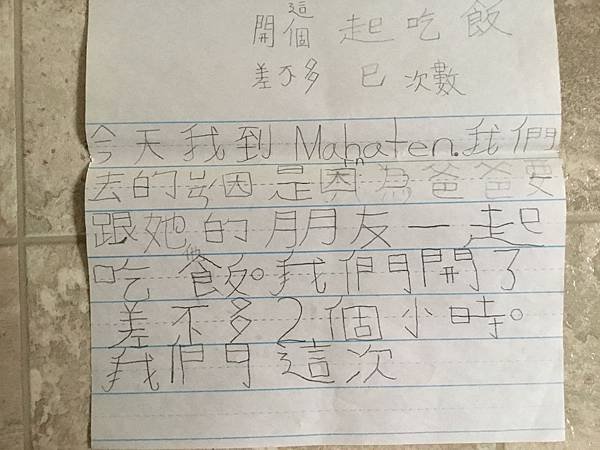 這
開個 起吃飯
差不多 已 次數
今天我到 Mahaten.我們
in
去的因是因為爸爸要
跟她的朋友一起
他
吃飯。我們開了
差不多2個小時。
我們這次